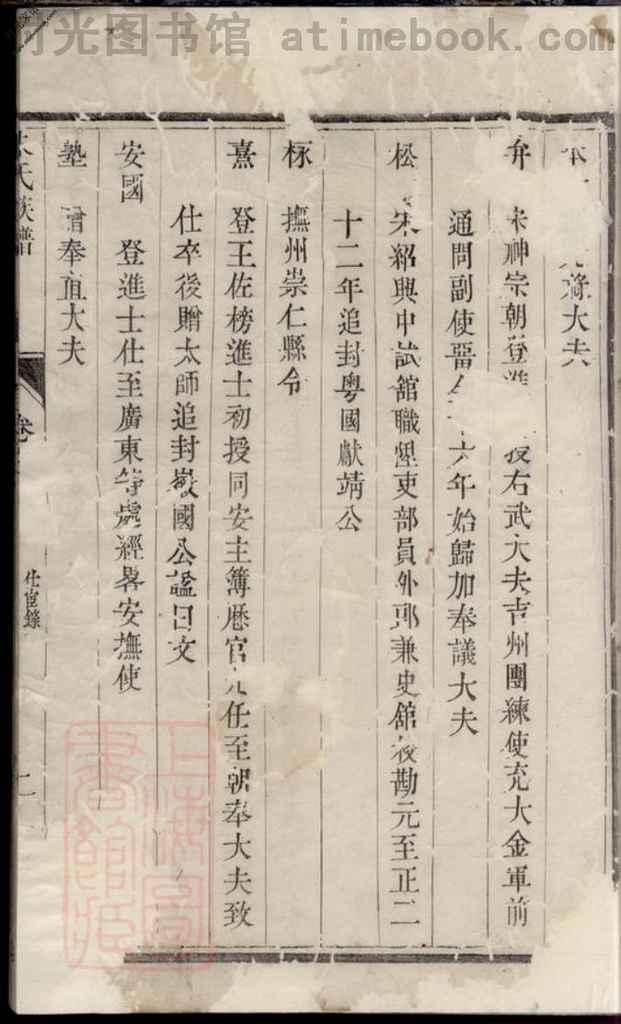 时光图书馆 atimebook.com
大夫
弁 宋神宗朝登進 授右武大夫吉州團練使充大金軍前
通問副使留金十六年始歸加奉議大夫
松 宋紹興中試舘職歷吏部員外郎兼史舘校勘元至正二
十二年追封粤國獻靖公
㮚 撫州崇仁縣令
熹 登王佐榜進士初授同安主簿歷官九任至朝奉大夫致
仕卒後贈太師追封徽國公諡曰文
安國 登進士仕至廣東等處經畧安撫使
塾 贈奉直大夫
氏族譜
卷
仕宦錄
二
上海圖
書館藏